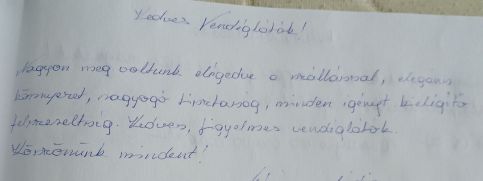 Kedves Vendéglátók!
Nagyon meg voltunk elégedve a szállással, elegáns
környezet, ragyogó tisztaság, minden igényt kielégítő
felszereltség. Kedves, figyelmes vendéglátók.
Köszönünk mindent!